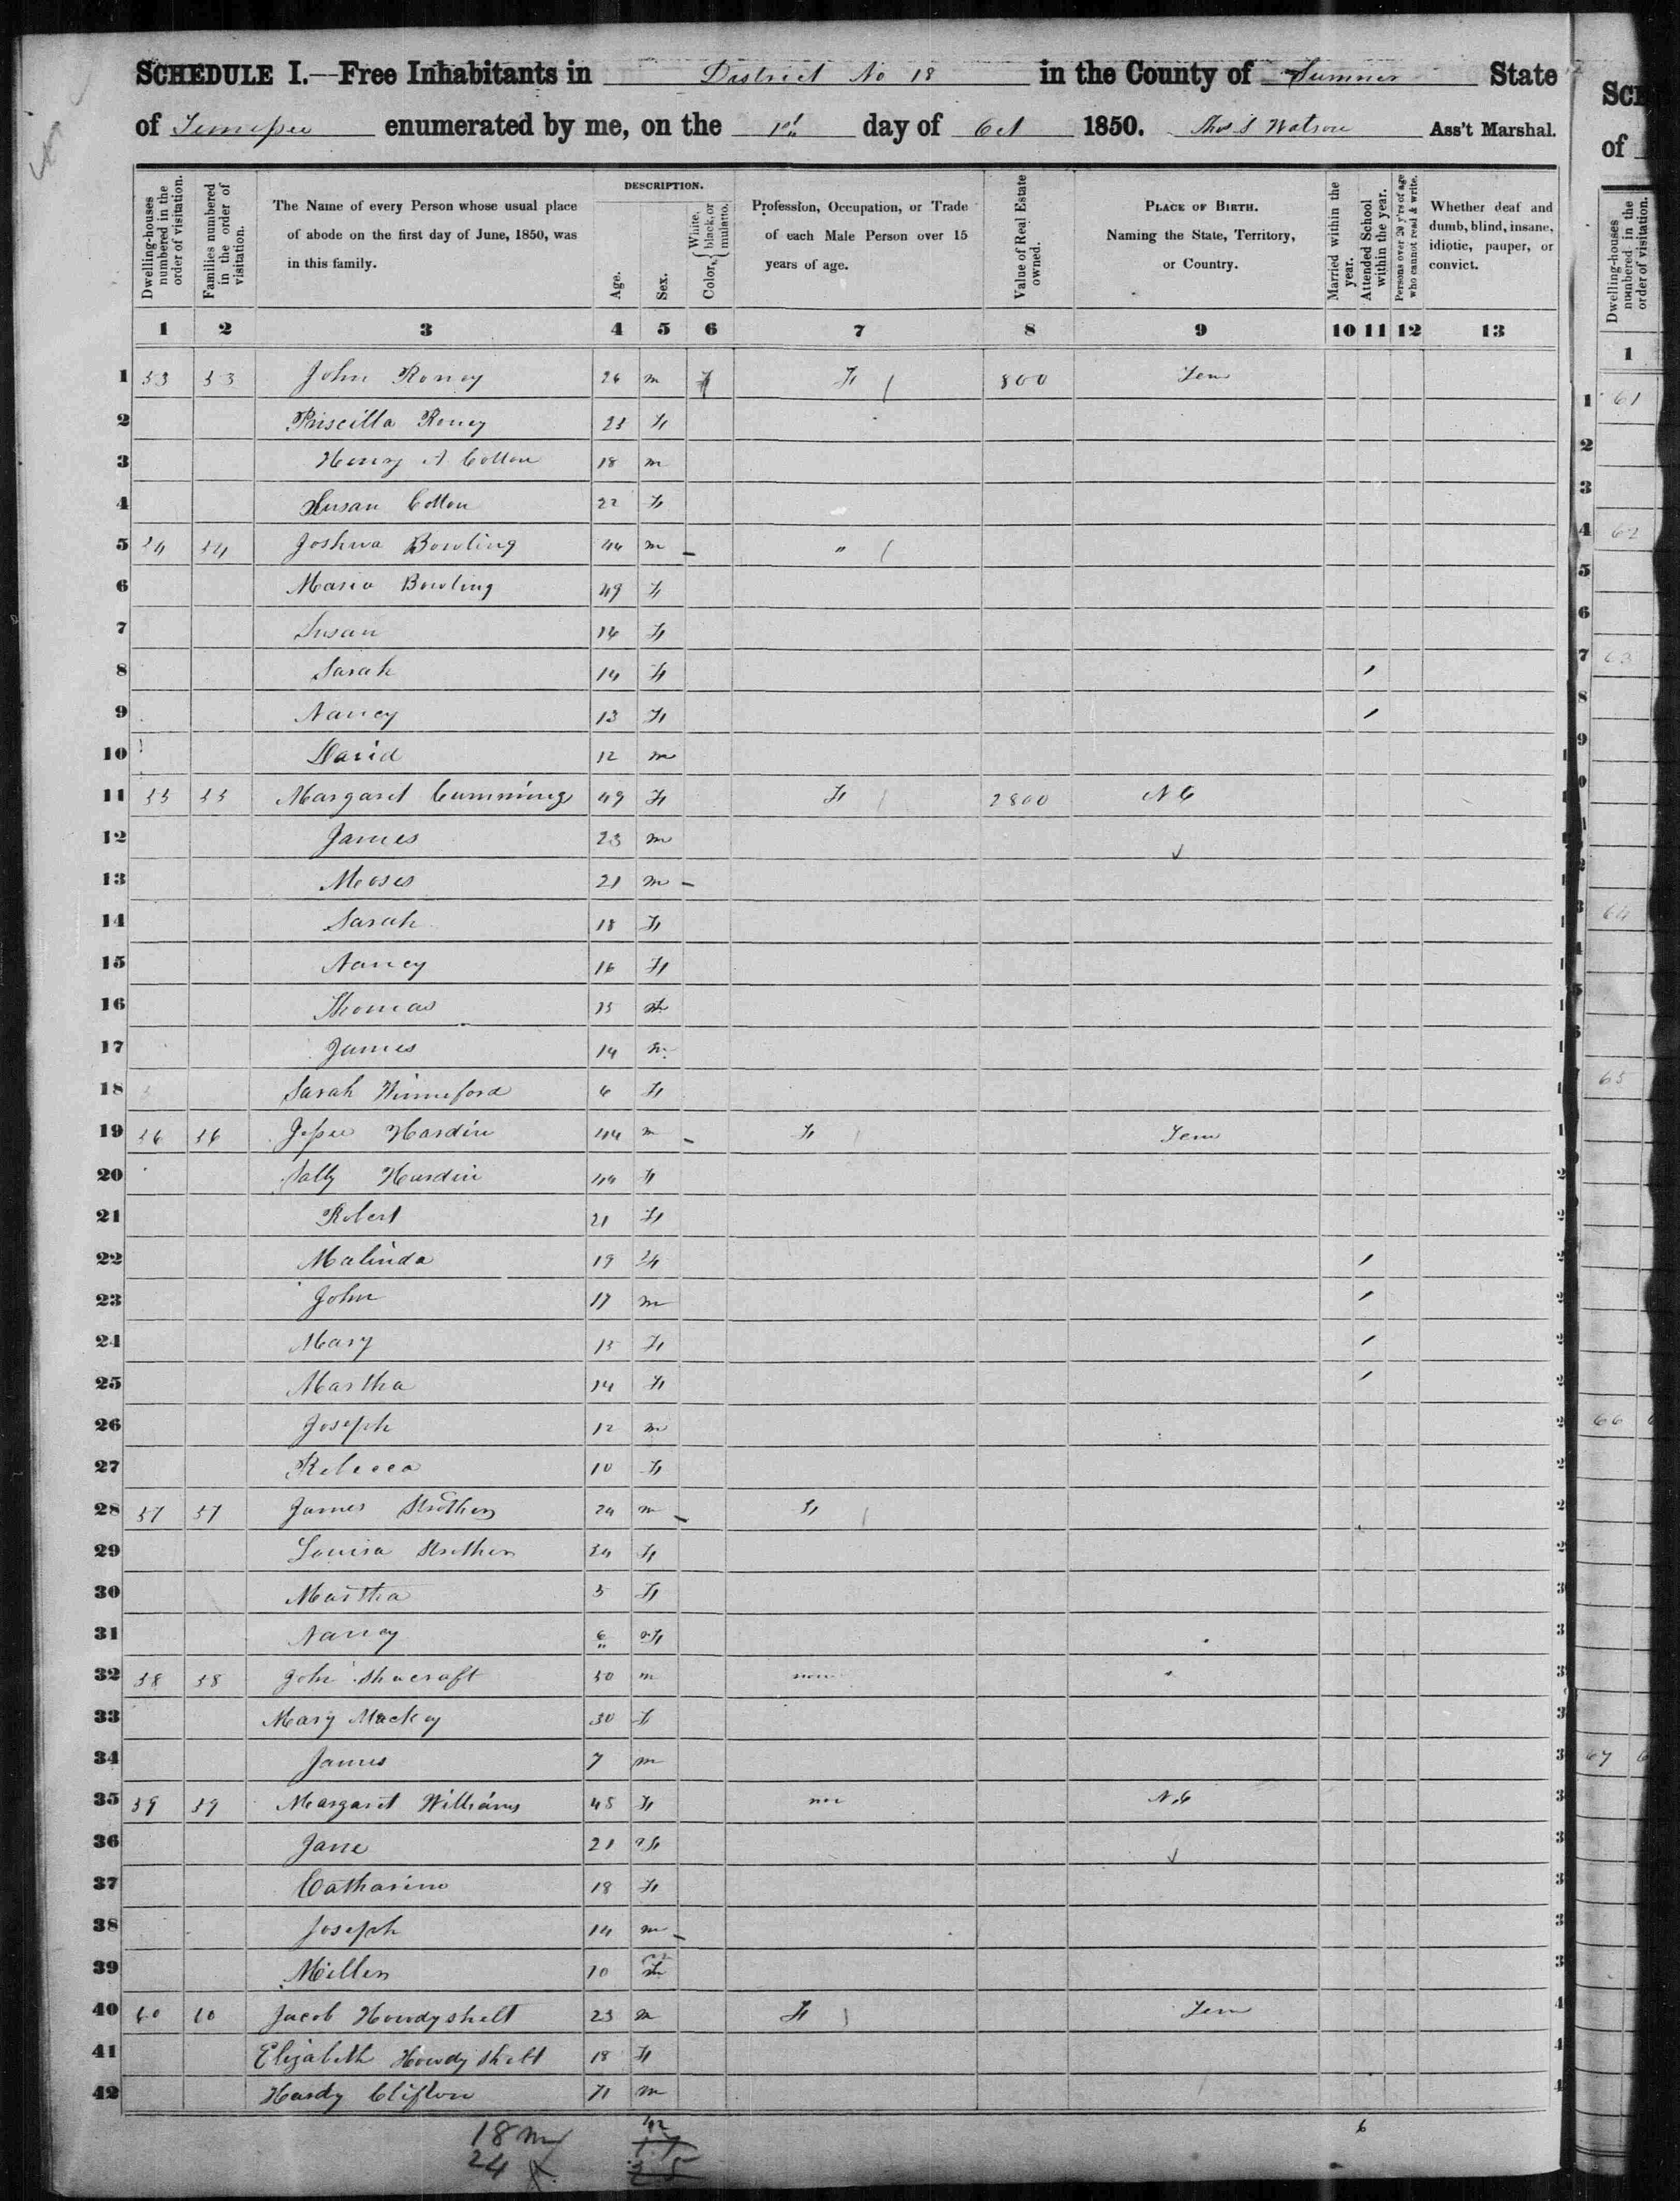 SCHEDULE I.—Free Inhabitants in District No 18 in the County of Sumner State
of Tennessee enumerated by me, on the 1st day of Oct 1850. Thos S Watson Ass't Marshal.
Dwelling-houses numbered in the order of visitation.
Families numbered in the order of visitation.
The Name of every Person whose usual place of abode on the first day of June, 1850, was in this family.
DESCRIPTION.
Age.
Sex.
Color, White, black, or mulatto.
Profession, Occupation, or Trade of each Male Person over 15 years of age.
Value of Real Estate owned.
PLACE OF BIRTH. Naming the State, Territory, or Country.
Married within the year.
Attended School within the year.
Persons over 20 y'rs of age who cannot read & write.
Whether deaf and dumb, blind, insane, idiotic, pauper, or convict.
1 2 3 4 5 6 7 8 9 10 11 12 13
1 53 53 John Roney 26 m F 800 Ten
2 Priscilla Roney 23 F
3 Henry A Cotton 18 m
4 Susan Cotton 22 F
5 54 54 Joshua Bowling 44 m "
6 Maria Bowling 49 F
7 Susan 16 F
8 Sarah 14 F
9 Nancy 13 F
10 David 12 m
11 55 55 Margaret Cummings 49 F F 2800 N C
12 James 23 m
13 Moses 21 m
14 Sarah 18 F
15 Nancy 16 F
16 Thomas 15 m
17 James 14 m
18 Sarah Winneford 6 F
19 56 56 Jesse Hardin 44 m F Tenn
20 Sally Hardin 44 F
21 Robert 21 F
22 Malinda 19 F
23 John 17 m
24 Mary 15 F
25 Martha 14 F
26 Joseph 12 m
27 Rebecca 10 F
28 57 57 James Strother 24 m F
29 Louisa Strother 24 F
30 Martha 5 F
31 Nancy 6 F
32 58 58 John Shucraft 50 m none
33 Mary Mackey 30 F
34 James 7 m
35 59 59 Margaret Williams 48 F N C
36 Jane 21 F
37 Catharine 18 F
38 Joseph 14 m
39 Millen 10
40 60 60 Jacob Howdyshelt 23 m F Ten
41 Elizabeth Howdyshelt 18 F
42 Hardy Clifton 71 m
18 m
24 f.
42
17
25
6
SCH
of
Dwelling-houses numbered in the order of visitation.
1
1 61
2
3
4 62
5
6
7 63
8
9
64
65
66
67